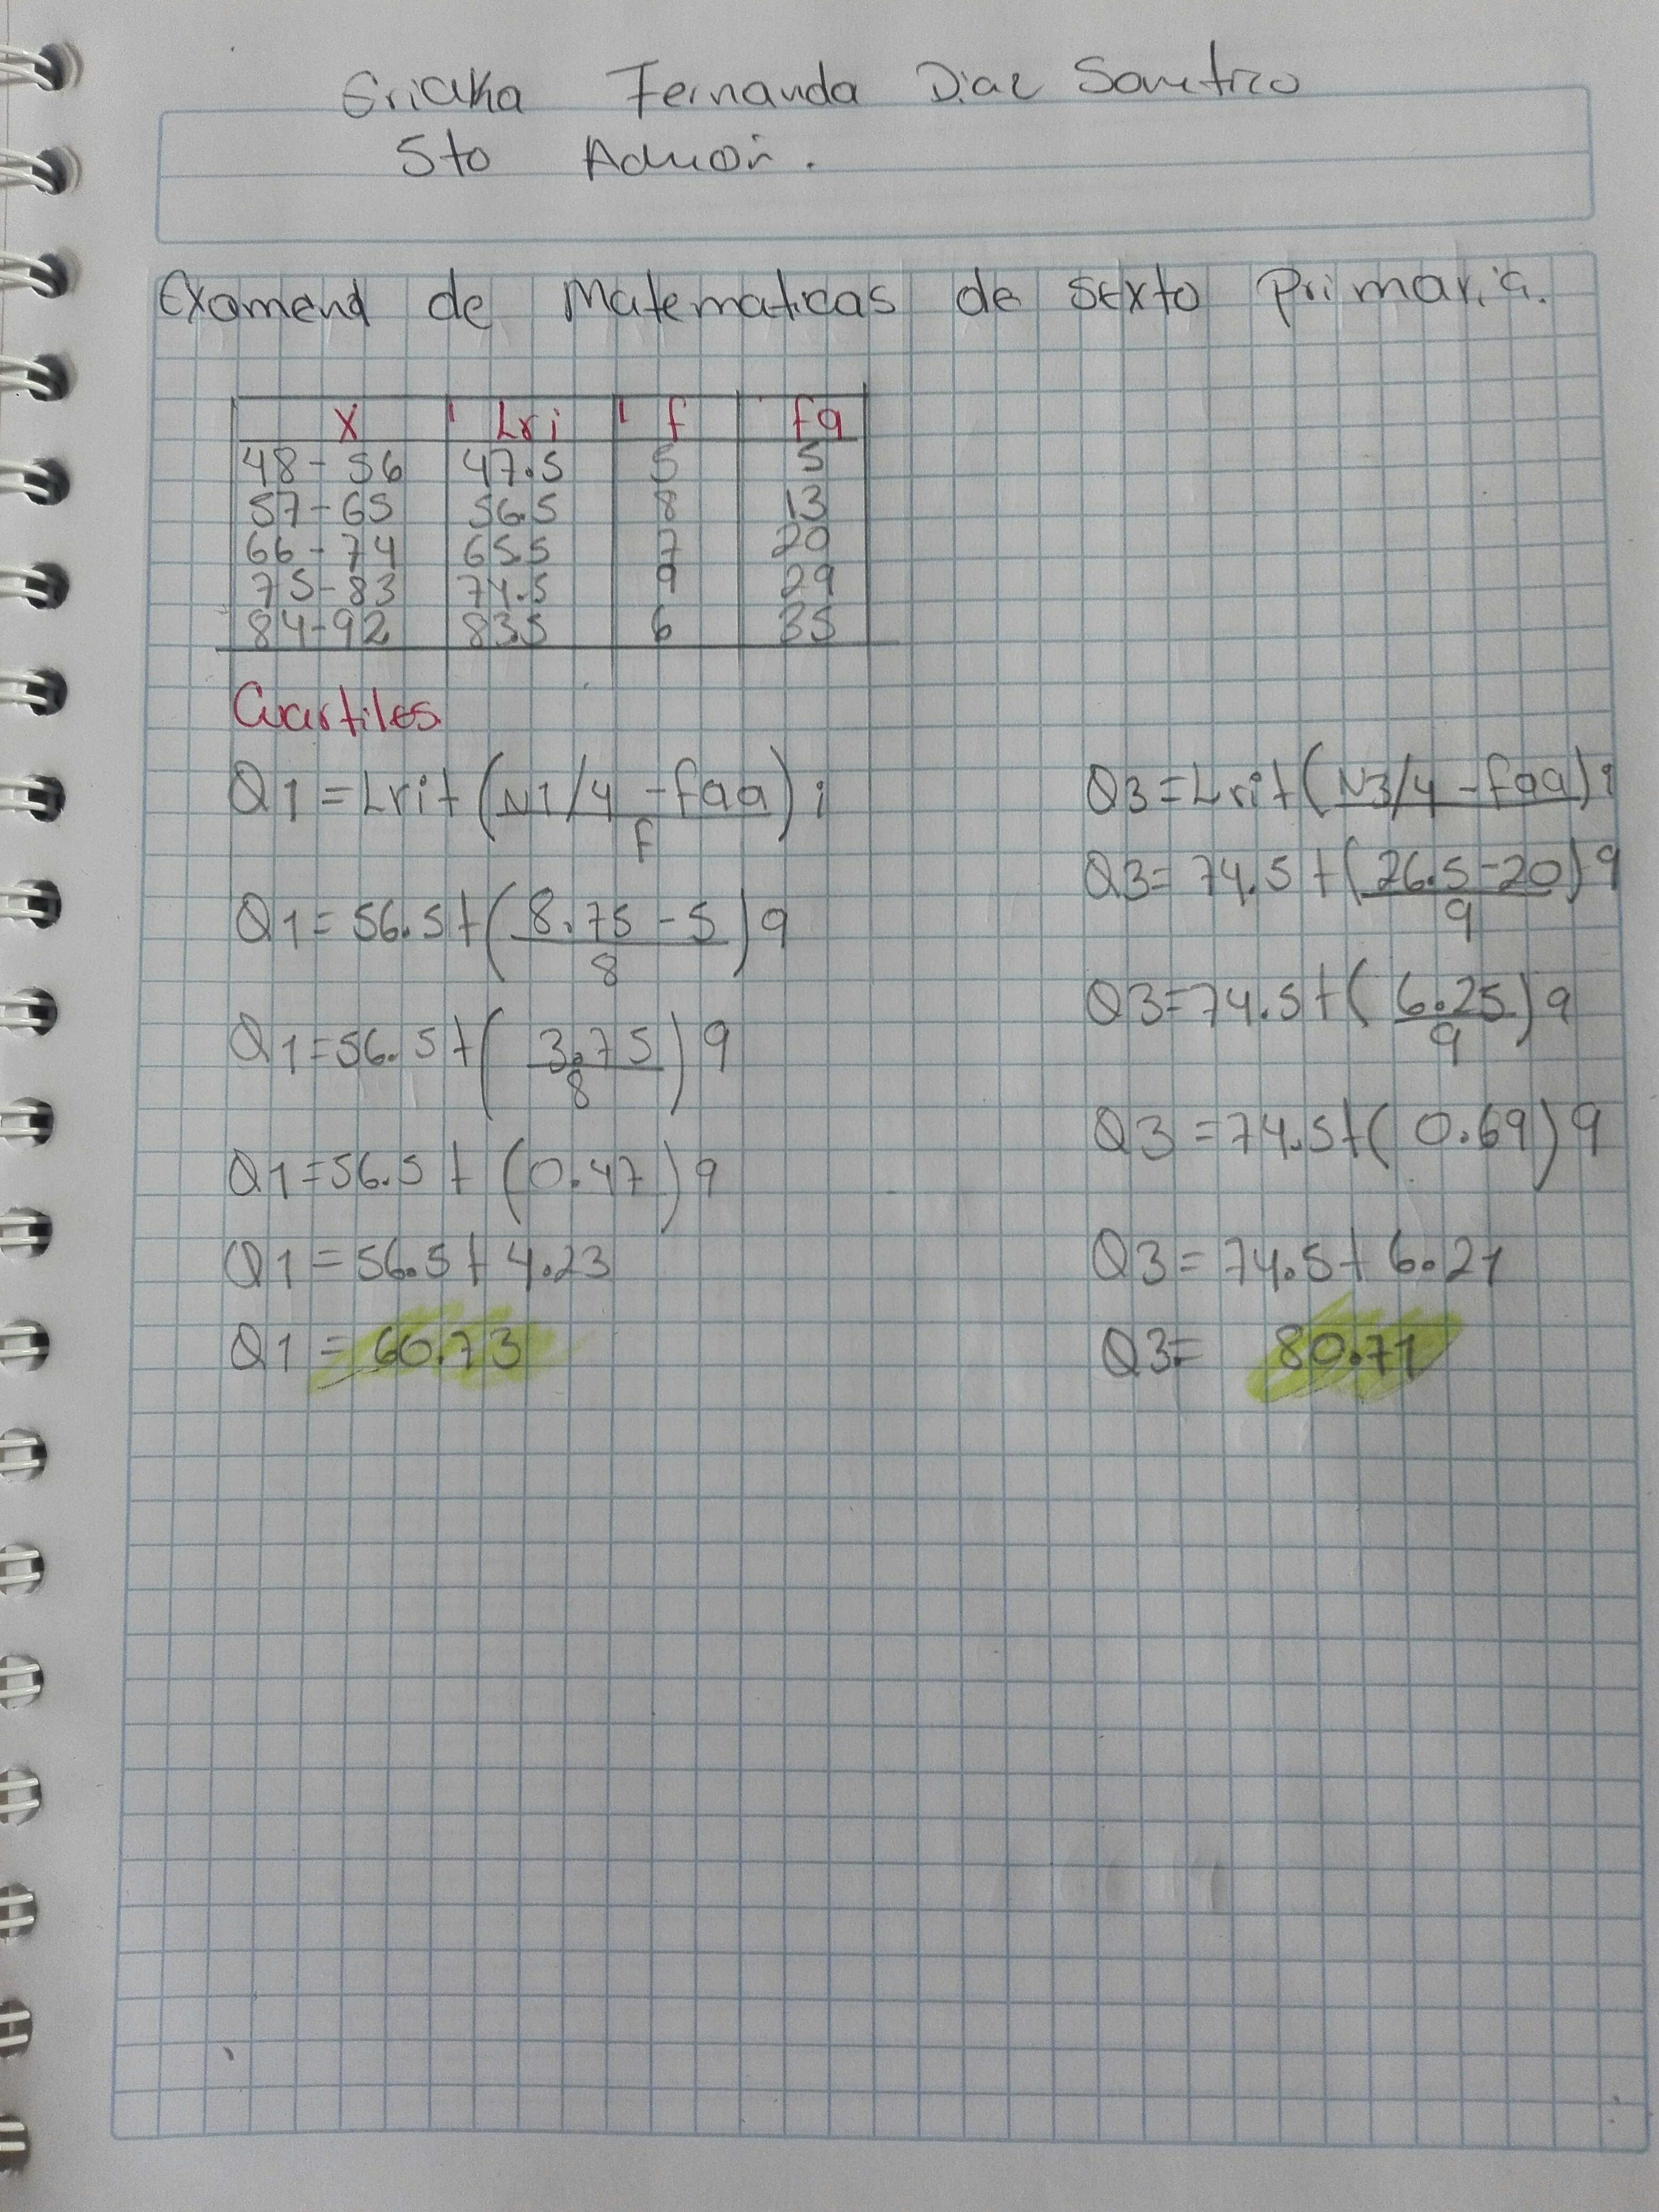 Fernanda Diaz
5to
Examend de Matematicas de sexto primaria.
X Lri f fa
48-56 47.5 5 5
57-65 56.5 8 13
66-74 65.5 7 20
75-83 74.5 9 29
84-92 83.5 6 35
Cuartiles
Q1=Lri+(N1/4-faa)i
f
Q1=56.5+(8.75-5)9
8
Q1=56.5+(3.75)9
8
Q1=56.5+(0.47)9
Q1=56.5+4.23
Q1=60.73
Q3=Lri+(N3/4-faa)i
Q3=74.5+(26.5-20)9
9
Q3=74.5+(6.25)9
9
Q3=74.5+(0.69)9
Q3=74.5+6.21
Q3=80.71